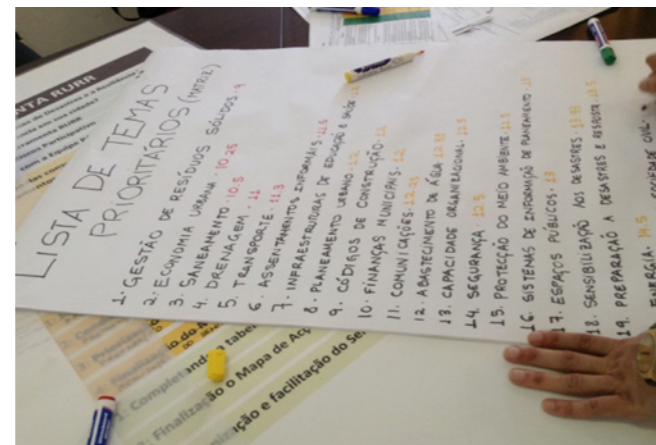 LISTA DE TEMAS
PRIORITÁRIOS (MATRIZ)
1. GESTÃO DE RESÍDUOS SÓLIDOS. 9
2. ECONOMIA URBANA. 10.25
3. SANEAMENTO. 10.5
4. DRENAGEM. 11
5. TRANSPORTE. 11.3
6. ASSENTAMENTOS INFORMAIS. 11.5
7. INFRAESTRUTURAS DE EDUCAÇÃO E SAÚDE
8. PLANEAMENTO URBANO. 12
9. CÓDIGOS DE CONSTRUÇÃO. 12
10. FINANÇAS MUNICIPAIS. 12
11. COMUNICAÇÕES. 12.25
12. ABASTECIMENTO DE ÁGUA.
13. CAPACIDADE ORGANIZACIONAL. 12.5
14. SEGURANÇA. 12.5
15. PROTECÇÃO DO MEIO AMBIENTE.
16. SISTEMAS DE INFORMAÇÃO DE PLANEAMENTO.
17. ESPAÇOS PÚBLICOS. 13
18. SENSIBILIZAÇÃO AOS DESASTRES.
19. PREPARAÇÃO A DESASTRES E RESPOSTA.
ENERGIA. 14.5
SOCIEDADE CIVIL.
NTA RURR
de Desastres e a Resiliência
sua cidade?
ramenta RURR
Participativo
com a Equipa
1. Completando a tabe
2. Finalização o Mapa de Acç
nização e facilitação do Se